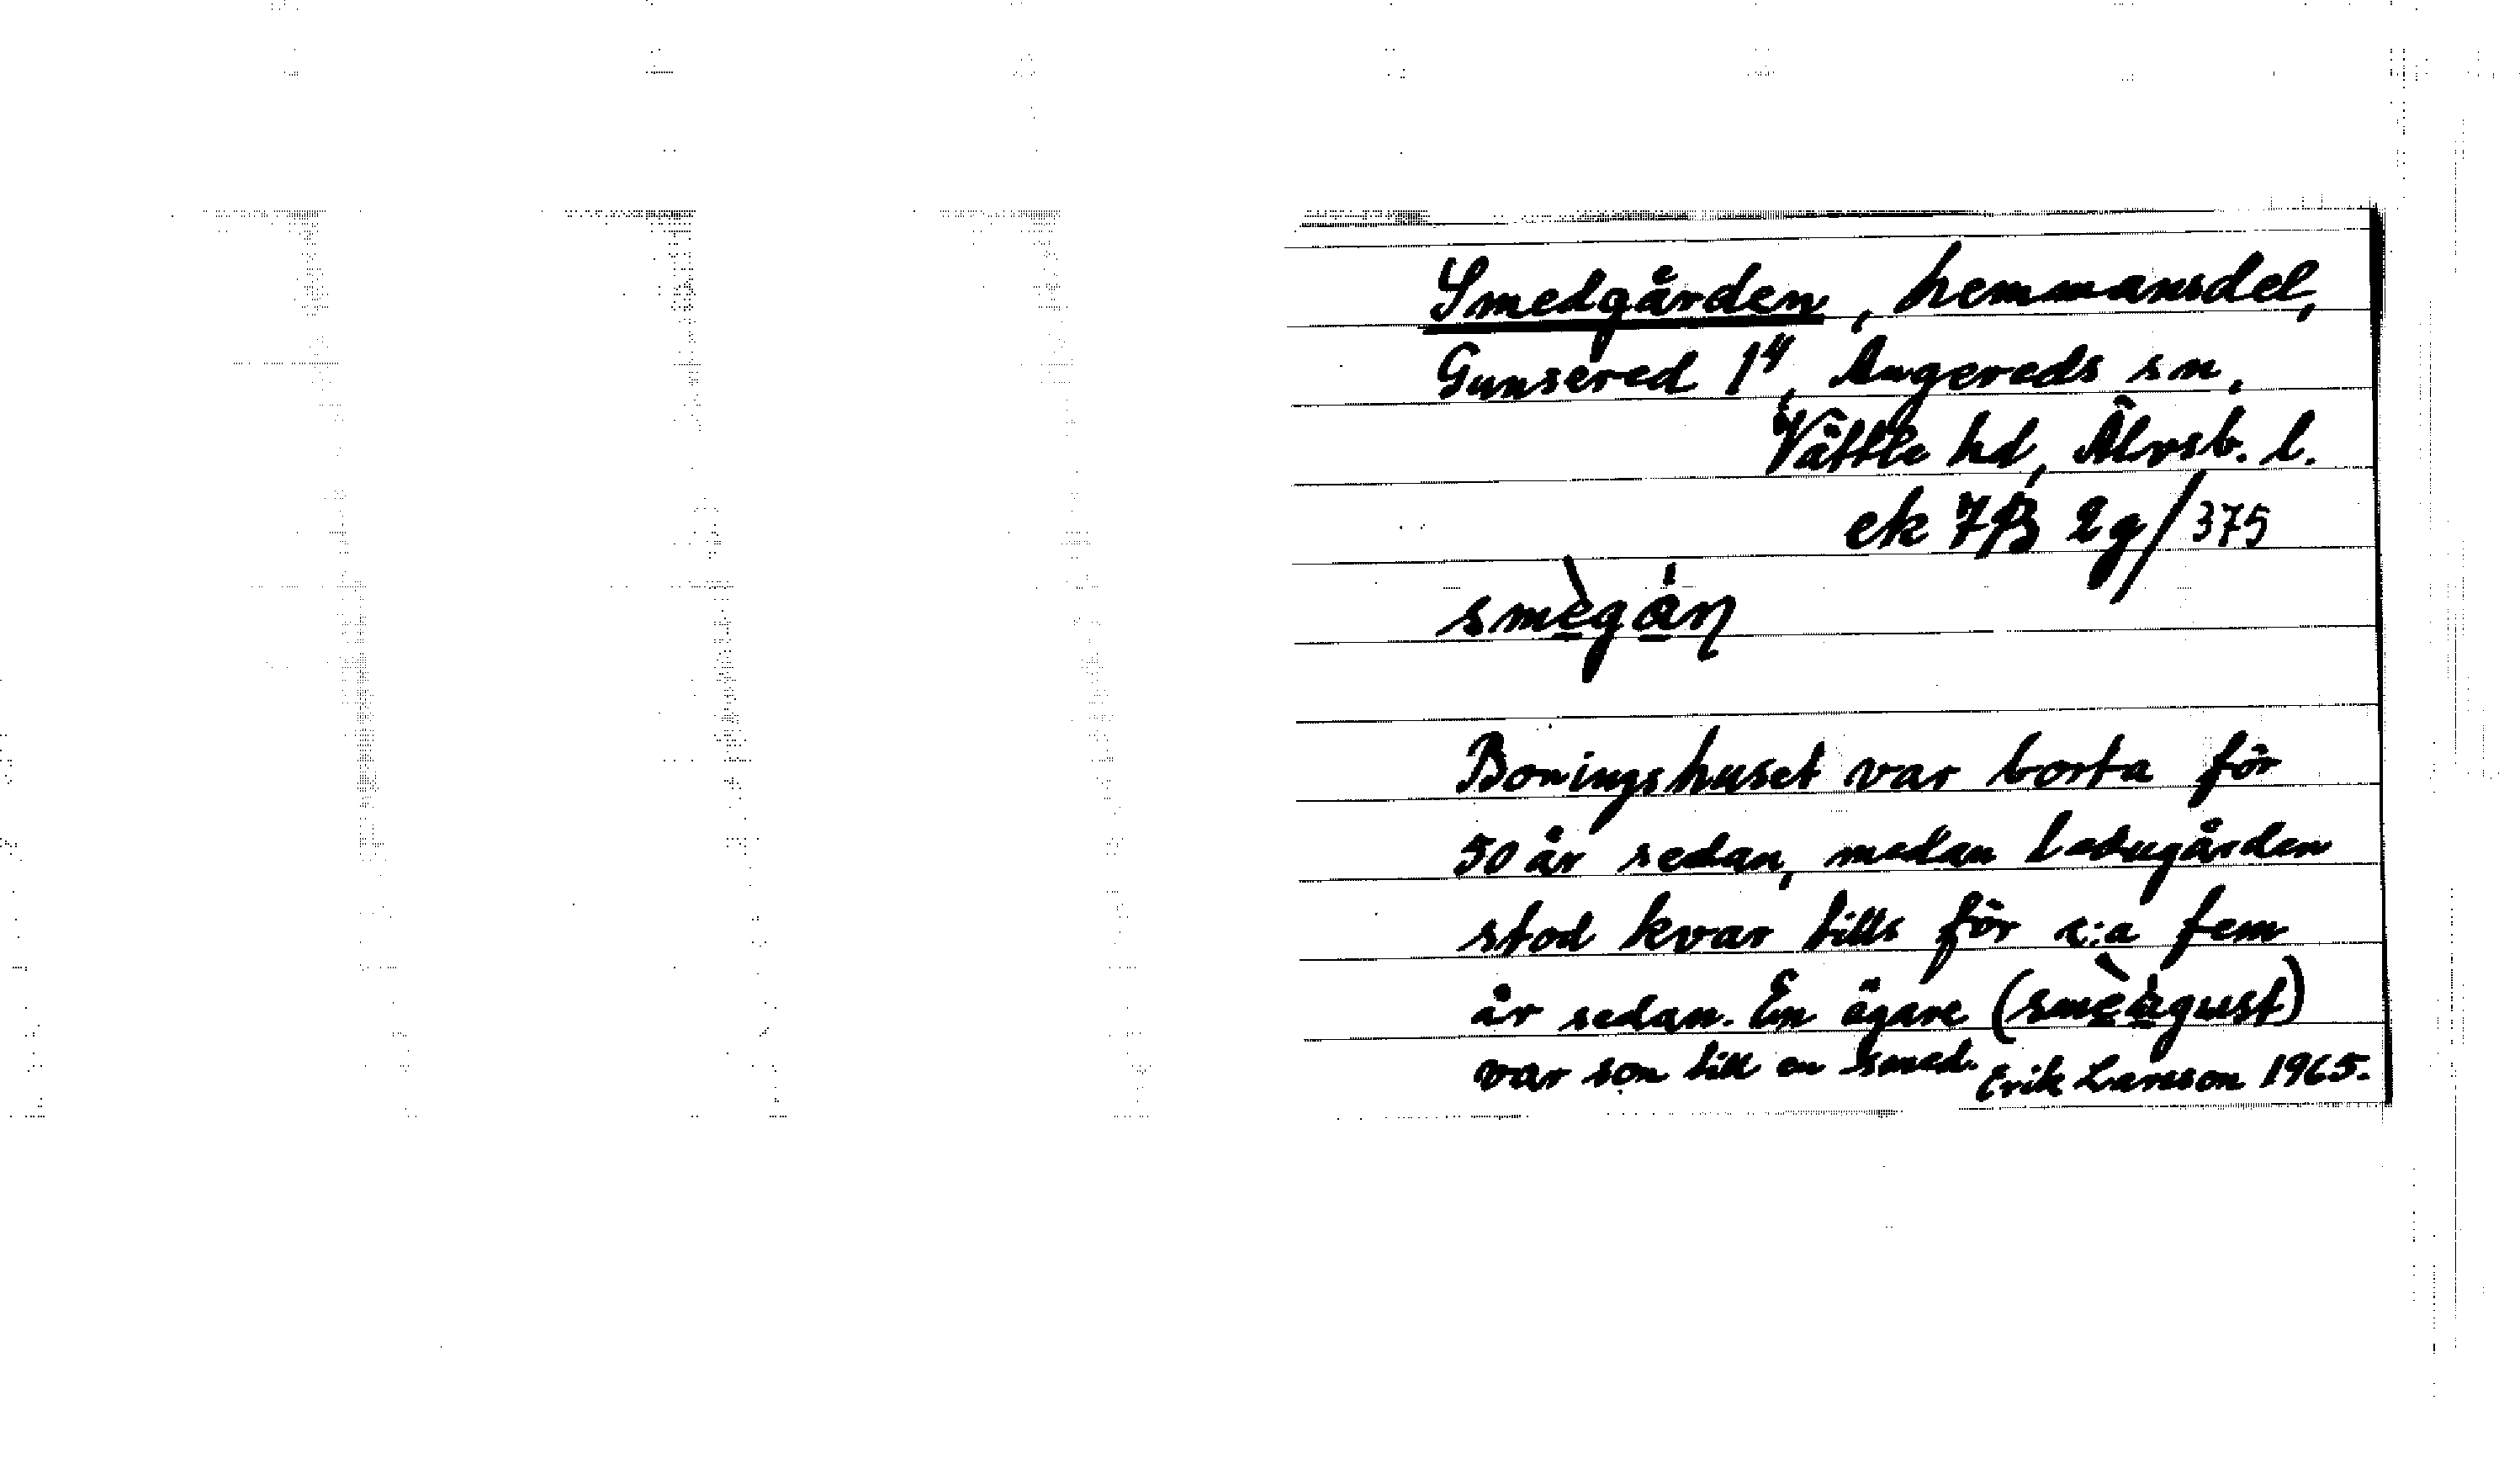 Smedgården, hemmansdel,
Gunsered 1⁴, Angereds sn,
Vättle hd, Älvsb. l.
ek 7B 2g/375
smègán
Boningshuset var borta för
50 år sedan, medan ladugården
stod kvar tills för c:a fem
år sedan. En ägare (smèágust)
var son till en smed. Erik Larsson 1965.